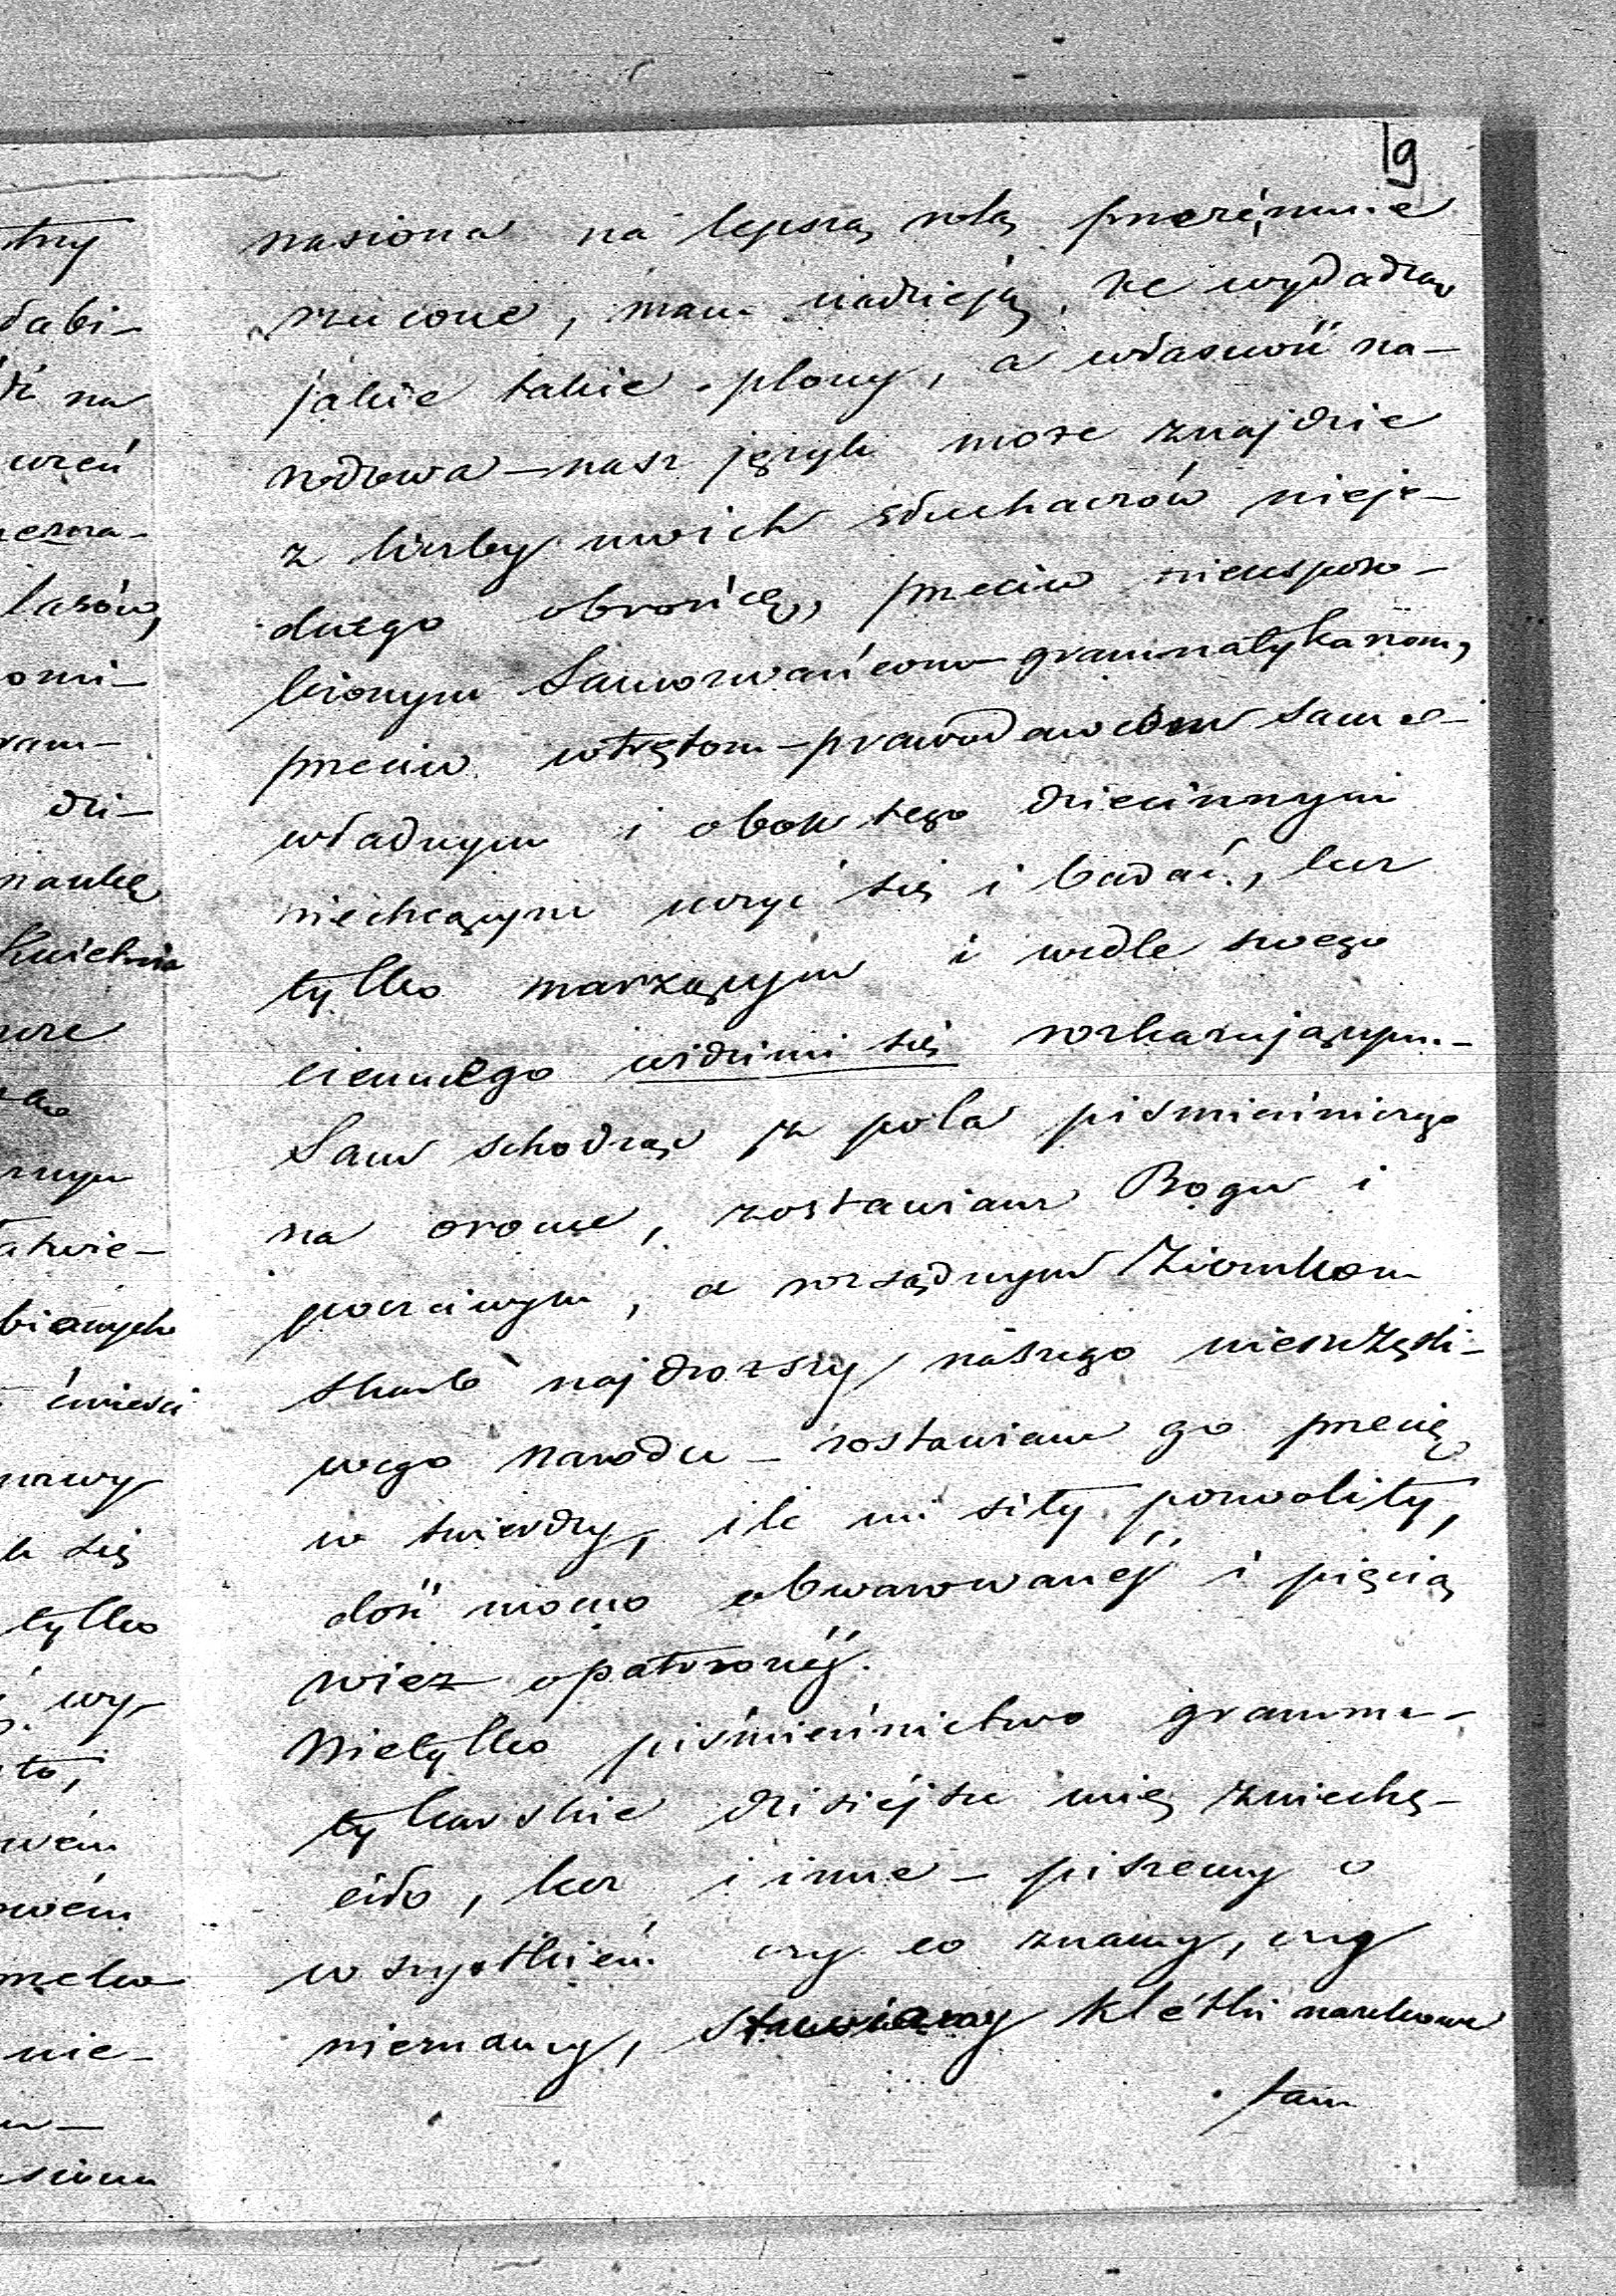 19
nasiona na lepszą rolą przezemnie
rzucone, mam nadzieję, że wydadzą
jakie takie plony, a własność na-
rodowa — nasz język może znajdzie
z liczby moich słuchaczów nieje-
dnego obrońcę, przeciw nieusposo-
bionym Samozwańcom-grammatykarzom,
przeciw wtrętom-prawodawcom samo-
władnym i obok tego dziecinnym
niechcącym uczyć się i badać, lecz
tylko marzącym i wedle swego
ciemnego widzimi się rozkazującym.—
Sam schodząc z pola piśmienniczego
na stronę, zostawiam Bogu i
poczciwym, a rozsądnym Ziomkom
skarb najdroższy naszego nieszczęśli-
wego narodu — zostawiam go przecię
w twierdzy, ile mi siły pozwoliły,
dość mocno obwarowanéj i pięcią
wież opatrzonéj.
Nietylko piśmiennictwo gramma-
tykarskie dzisiejsze mię zniechę-
ciło, lecz i inne — piszemy o
wszystkiém czy co znamy, czy
nieznamy, stawiamy klétki naukowe
tam
try
dabi-
na
lasów,
omi-
ram-
dzi-
naukę
Kwietnia
atwie-
bianych
się
tylko
wy-
to,
wém
owém
nie-